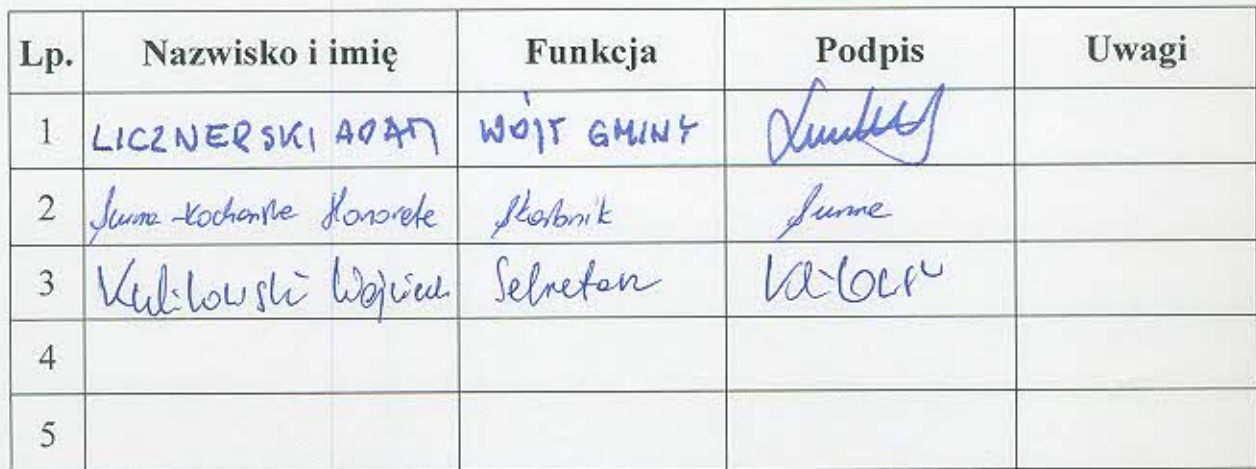 Lp. Nazwisko i imię Funkcja Podpis Uwagi
1 LICZNERSKI ADAM WÓJT GMINY
2 Kochańska Honorata Skarbnik
3 Kulikowski Wojciech Sekretarz
4
5